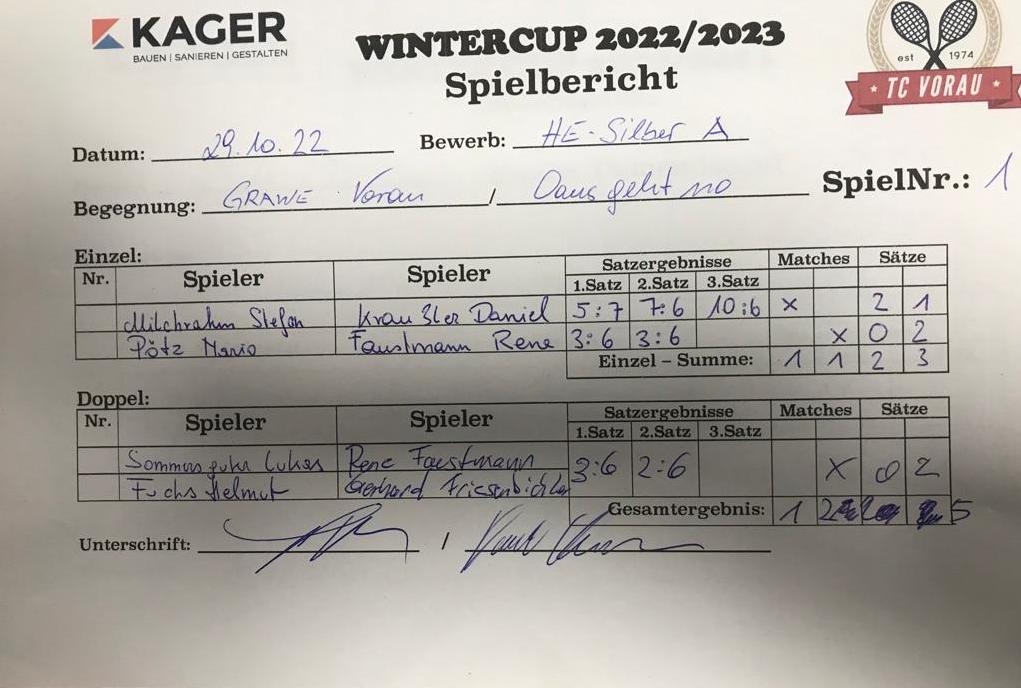 KAGER
BAUEN | SANIEREN | GESTALTEN
WINTERCUP 2022/2023
Spielbericht
est 1974
* TC VORAU *
Datum: 29.10.22 Bewerb: HE-Silber A
Begegnung: GRAWE Vorau / Daus geht no SpielNr.: 1
Einzel:
Nr. Spieler Spieler Satzergebnisse Matches Sätze
1.Satz 2.Satz 3.Satz
Milchrahm Stefan Kraußler Daniel 5:7 7:6 10:6 x 2 1
Pötz Mario Faustmann Rene 3:6 3:6 x 0 2
Einzel – Summe: 1 1 2 3
Doppel:
Nr. Spieler Spieler Satzergebnisse Matches Sätze
1.Satz 2.Satz 3.Satz
Lukas Rene Faustmann 3:6 2:6 X 0 2
Fuchs Helmut Gerhard Friesenbichler
Gesamtergebnis: 1 2 5
Unterschrift: /